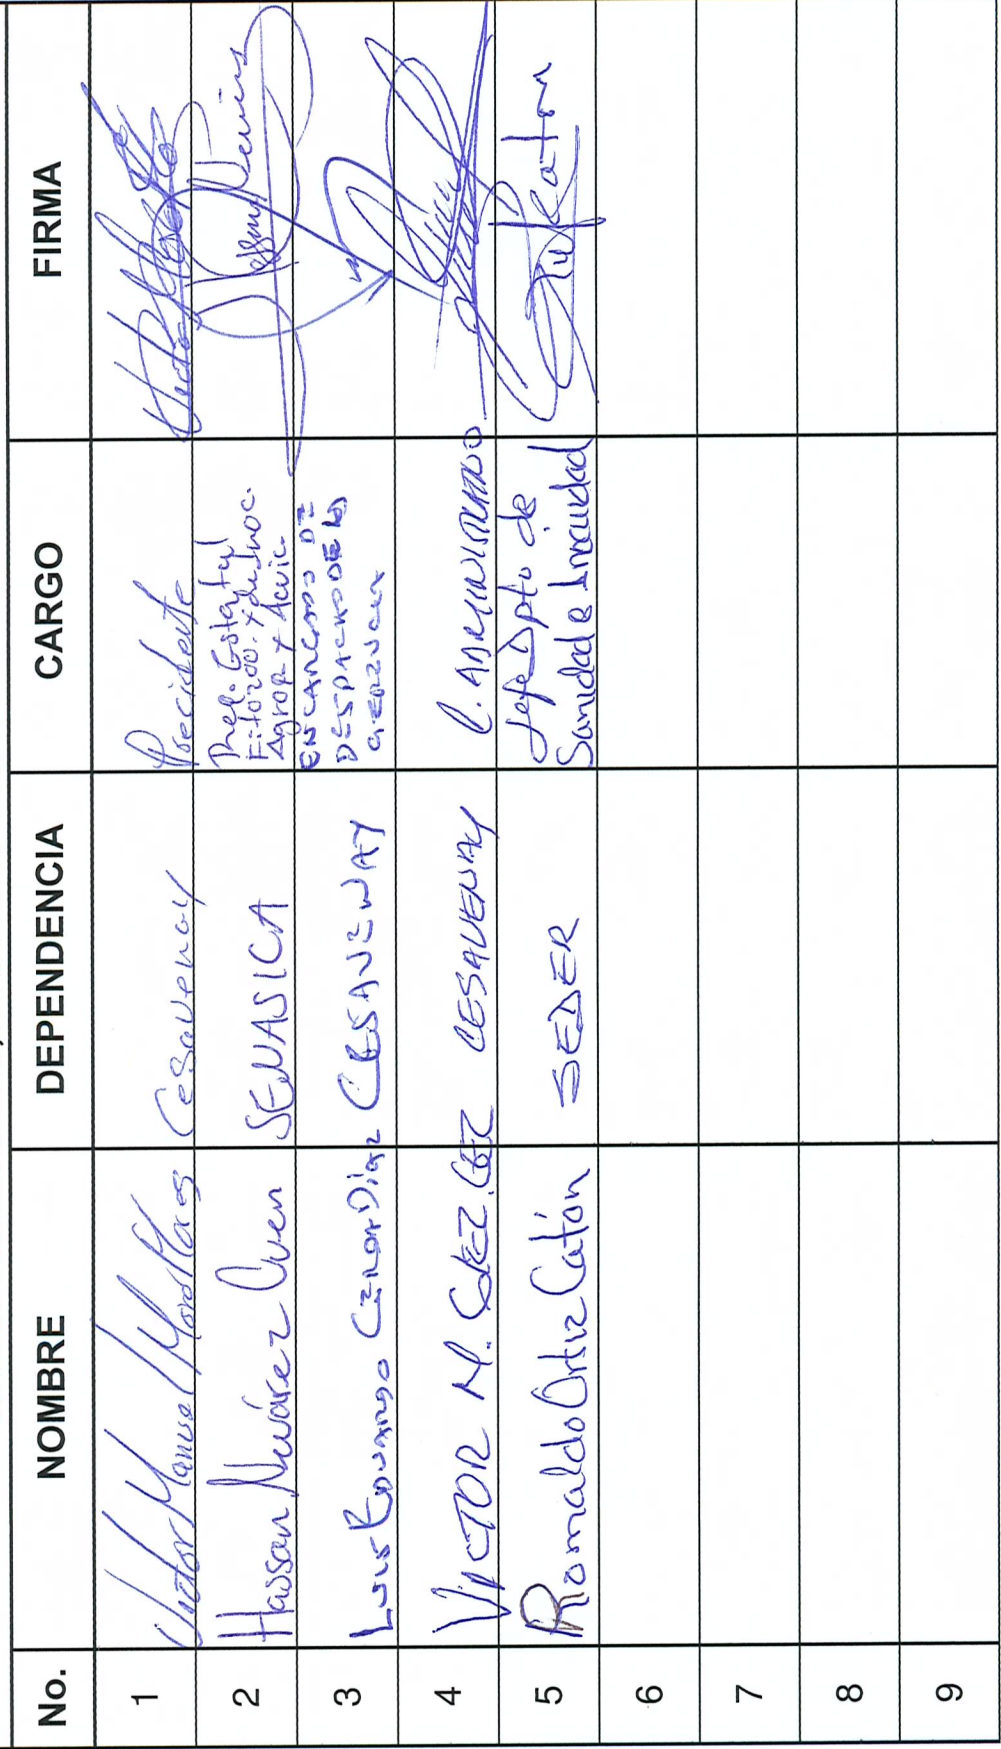 No. NOMBRE DEPENDENCIA CARGO FIRMA
1 Victor Manuel Cesavenay Precidente
2 Hassan Nevárez Cuen SENASICA Estatal
Agrop. y Acuic.
3 LUIS EDUARDO CERDA Diaz CESAVENAY ENCARGADO DE
DESPACHO DE LA
GERENCIA
4 VICTOR M. CESAVENAY C. ADMINISTRATIVO
5 Romaldo Ortiz Catón SEDER Jefe Dpto de
Sanidad e Inocuidad
6
7
8
9